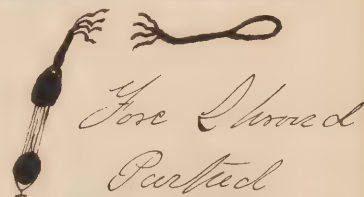 Fore Shroud
Parted